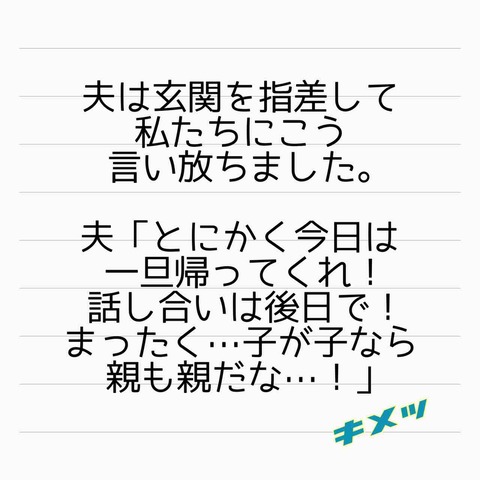 夫は玄関を指差して
私たちにこう
言い放ちました。
夫「とにかく今日は
一旦帰ってくれ！
話し合いは後日で！
まったく…子が子なら
親も親だな…！」
キメッ